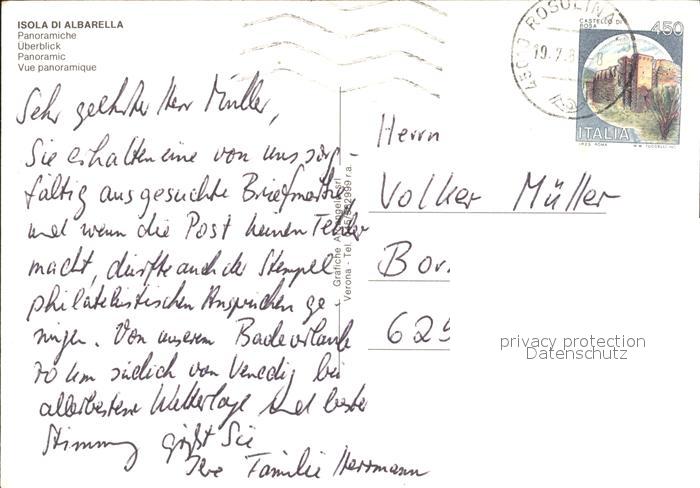 ISOLA DI ALBARELLA
Panoramiche
Überblick
Panoramic
Vue panoramique
CASTELLO DI
ROSA
450
ITALIA
I.P.Z.S. ROMA
ROSOLINA
19.7.8
Sehr geehrter Herr Müller,
Sie erhalten eine von uns sorg-
fältig ausgesuchte Briefmarke
und wenn die Post keinen Fehler
macht, dürfte auch der Stempel
philatelistischen Ansprüchen ge-
nügen. Von unserem Badeurlaub
70 km südlich von Venedig bei
allerbester Wetterlage und bester
Stimmung grüßt Sie
Ihre Familie Herrmann
Grafiche
Verona - Tel.
Herrn
Volker Müller
Bor.
629
privacy protection
Datenschutz